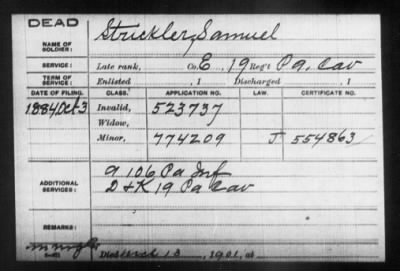 DEAD
NAME OF SOLDIER: Strickler, Samuel
SERVICE: Late rank, Co. E, 19 Reg't Pa. Cav
TERM OF SERVICE: Enlisted , 1 Discharged , 1
DATE OF FILING. CLASS. APPLICATION NO. LAW. CERTIFICATE NO.
1884 Oct 3 Invalid, 523737
Widow,
Minor, 774209 J 554863
ADDITIONAL SERVICES: 106 Pa Inf
D & K 19 Pa Cav
REMARKS:
Died March 13, 1901, at